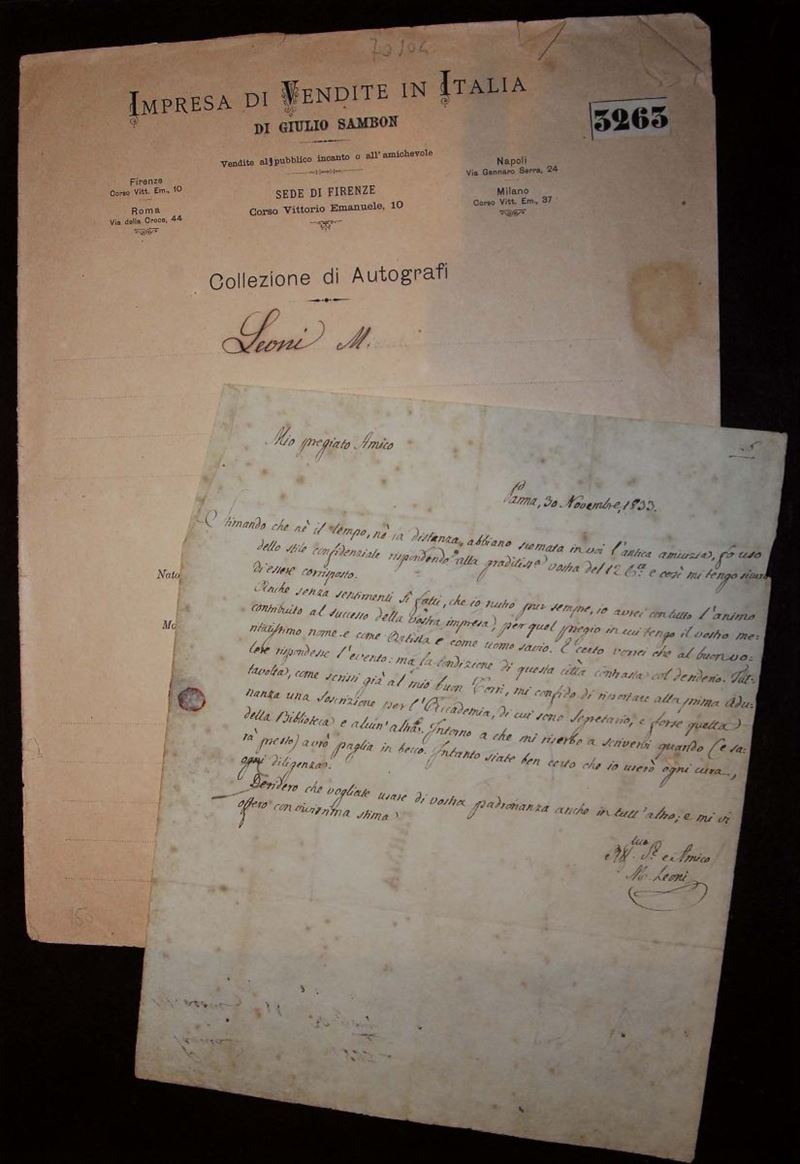 70104
IMPRESA DI VENDITE IN ITALIA
DI GIULIO SAMBON
3263
Vendite al pubblico incanto o all'amichevole
Firenze
Corso Vitt. Em., 10
Roma
Via della Croce, 44
SEDE DI FIRENZE
Corso Vittorio Emanuele, 10
Napoli
Via Gennaro Serra, 24
Milano
Corso Vitt. Em., 37
Collezione di Autografi
Leoni M.
Nato
Mo
150
Mio pregiato Amico
Parma, 30 Novembre, 1833.
Stimando che nè il tempo, nè la distanza, abbiano scemata in voi l'antica amicizia, fo uso
dello stile confidenziale rispondendo alla graditissa vostra del 12 e così mi tengo sicuro
di essere corrisposto.
Anche senza sentimenti sì fatti, che io nutro pur sempre, io avrei con tutto l'animo
contribuito al successo della vostra impresa, per quel pregio in cui tengo il vostro me=
ritatissimo nome e come Artista e come uomo savio. E certo vorrei che al buon vo=
lere rispondesse l'evento: ma la condizione di questa città contrasta col desiderio. Tut=
tavolta, come scrissi già al mio buon Torri, mi confido di riportare alla prima Adu=
nanza una soscrizione per l'Accademia, di cui sono Segretario, e forse quella
della Biblioteca e alcun'altra. Intorno a che mi riserbo a scrivervi quando (e sa=
rà presto) avrò paglia in becco. Intanto siate ben certo che io userò ogni cura,
ogni diligenza.
Desidero che vogliate usare di vostra padronanza anche in tutt'altro; e mi vi
offero con vivissima stima
e Amico
M. Leoni